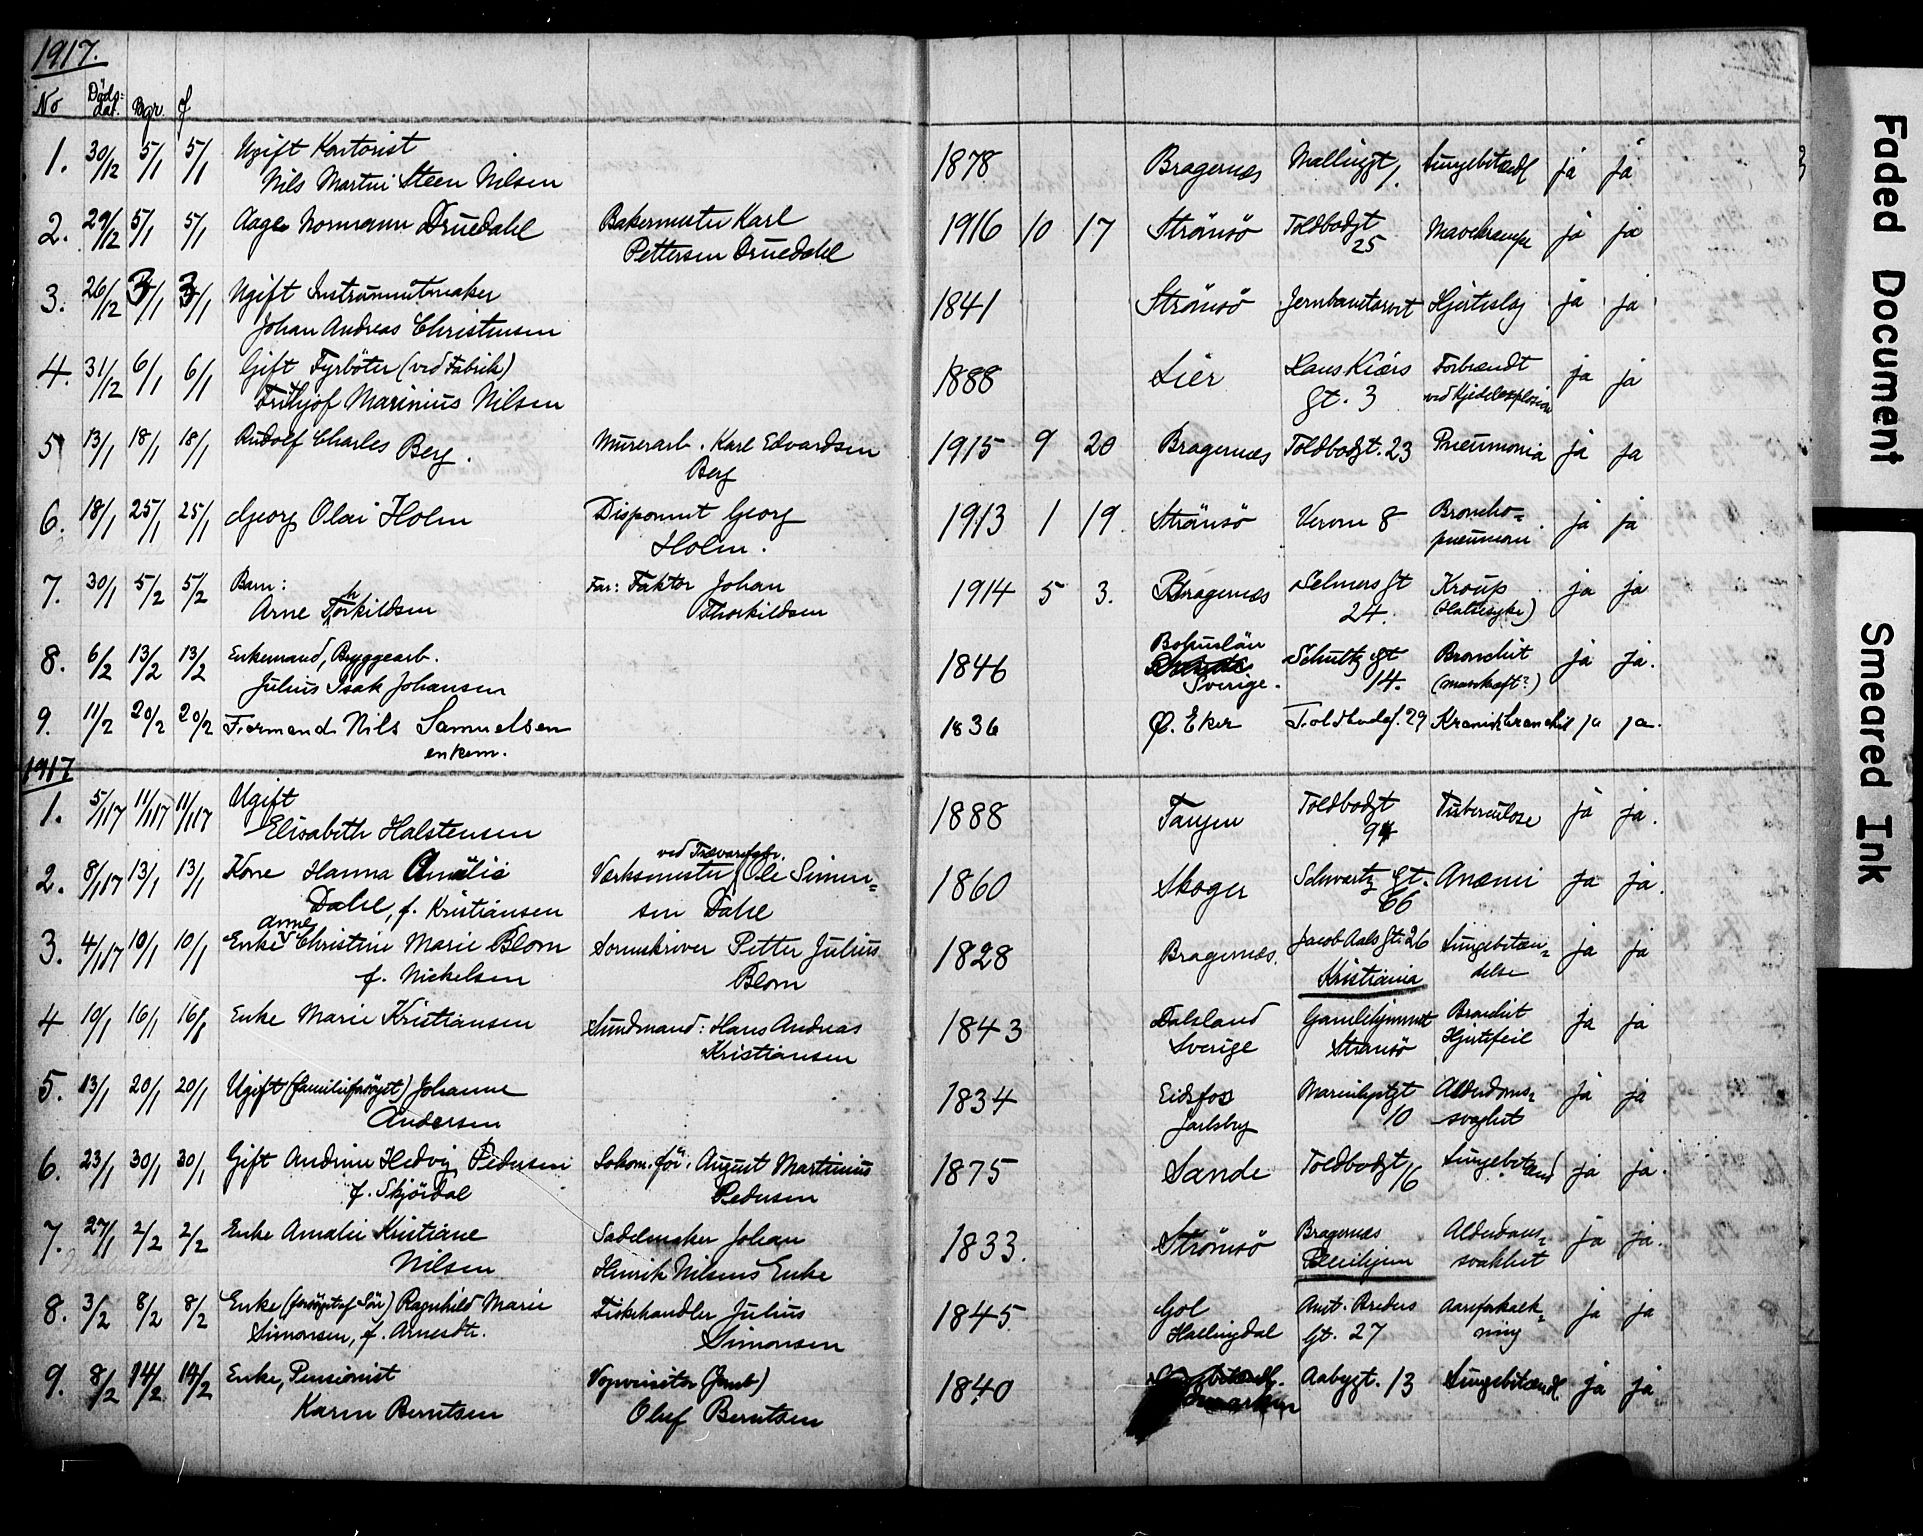 1917.
No Döds-dat. Bgr. J.
1. 30/12 5/1 5/1 Ugift Kontorist 1878 Bragernæs Mallinggt 1. Lungebetændl ja ja
Nils Martin Steen Nilsen
2. 29/12 5/1 5/1 Aage Normann Druedahl Bakermester Karl 1916 10 17 Strömsö Toldbodgt 25 Mavekrampe ja ja
Pettersen Druedahl
3. 26/12 3/1 3/1 Ugift Instrumentmaker 1841 Strömsö Jernbanetorvet Hjerteslag ja ja
Johan Andreas Christensen
4. 31/12 6/1 6/1 Gift Fyrböter (ved Fabrik) 1888 Lier Hans Kiærs Forbrændt ja ja
Frithjof Marinius Nilsen gt. 3 ved Kjedelexplosion
5 13/1 18/1 18/1 Rudolf Charles Berg. Murerarb. Karl Edvardsen 1915 9 20 Bragernæs Toldbodgt. 23 Pneumonia ja ja
Berg
6. 18/1 25/1 25/1 Georg Olai Holm Disponent Georg 1913 1 19. Strömsö Verven 8 Broncho= ja ja
Holm. pneumoni
7. 30/1 5/2 5/2 Barn: Far: Faktor Johan 1914 5 3. Bragernæs Selmers gt Kroup ja ja
Arne Thorkildsen Thorkildsen 24. (Halssyke)
8. 6/2 13/2 13/2 Enkemand, Bryggearb. 1846 Bohuslän Schultz gt Bronchit ja ja.
Julius Isak Johansen Sverige. 14. (marskaft?)
9. 11/2 20/2 20/2 Formand Nils Samuelsen 1836 Ö. Eker Toldbodg. 29 Kronisk bronchit ja ja.
enkem.
1917
1. 5/1 17 11/1 17 11/1 17 Ugift 1888 Tangen Toldbodgt Tuberculose ja ja.
Elisabeth Halstensen 94
2. 8/1 17 13/1 13/1 Kone Hanna Amalie ved Trævarefabr. Værksmester Ole Simen= 1860 Skoger Schwartz gt. Anæmi ja ja.
Dahl, f. Kristiansen sen Dahl 66
3. 4/1 17 10/1 10/1 Enke Anne Christine Marie Blom Sorenskriver Petter Julius 1828 Bragernæs. Jacob Aals gt. 26 Lungebetæn= ja ja
f. Nickelsen Blom Kristiania delse
4 10/1 16/1 16/1 Enke Marie Kristiansen Sundmand: Hans Andreas 1843 Dalsland Gamlehjemmet Bronchit ja ja
Kristiansen Sverige Strömsö Hjertefeil
5. 13/1 20/1 20/1 Ugift (familieforsörget) Johanne 1834 Eidsfos Marienlystgt Alderdoms= ja ja
Andersen Jarlsberg 10 svaghet
6. 23/1 30/1 30/1 Gift Andrine Hedvig Pedersen Lokom.för. August Martinius 1875 Sande Toldbodgt 16 Lungebetænd ja ja.
f. Skjördal Pedersen
7. 27/1 2/2 2/2 Enke Amalie Kristiane Sadelmaker Johan 1833. Strömsö Bragernæs Alderdoms= ja ja.
Nilsen Henrik Nilsens Enke Pleiehjem svakhet
8. 3/2 8/2 8/2 Enke (forsörget af Sön) Ragnhild Marie Fiskehandler Julius 1845 Gol Amt. Breders Aareforkalk= ja ja
Simonsen, f. Arnesdtr. Simonsen Hallingdal gt. 27 ning
9. 8/2 14/2 14/2 Enke, Pensionist Vognvisitör (Jernb) 1840 Aabygt. 13 Lungebetændl. ja ja
Karen Berntsen Oluf Berntsen
Faded Document
Smeared Ink